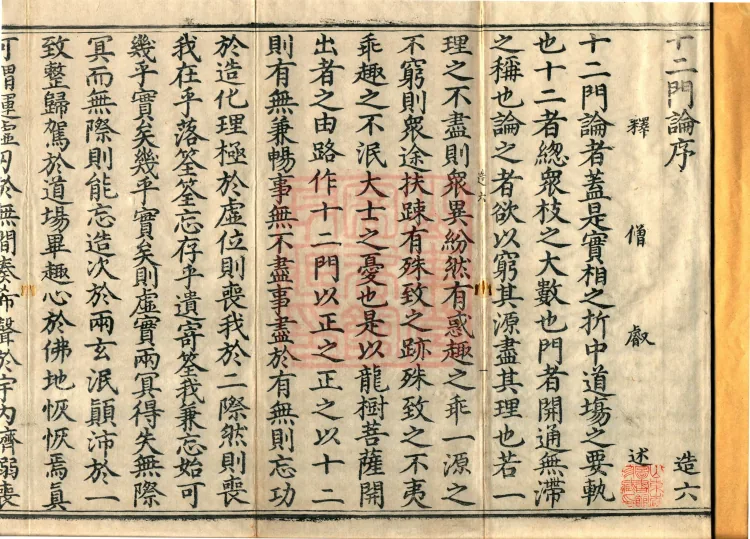 十二門論序 造六
釋 僧 叡 述
十二門論者蓋是實相之折中道塲之要軌
也十二者緫衆枝之大數也門者開通無滯
之稱也論之者欲以窮其源盡其理也若一
造六
理之不盡則衆異紛然有惑趣之乖一源之
不窮則衆途扶踈有殊致之跡殊致之不夷
乖趣之不泯大士之憂也是以龍樹菩薩開
出者之由路作十二門以正之正之以十二
則有無兼暢事無不盡事盡於有無則忘功
於造化理極於虛位則喪我於二際然則喪
我在乎落筌筌忘存乎遺寄筌我兼忘始可
幾乎實矣幾乎實矣則虛實兩冥得失無際
冥而無際則能忘造次於兩玄泯顚沛於一
致整歸駕於道場畢趣心於佛地恢恢焉眞
可謂運虛刃於無間奏希聲於宇内濟弱喪